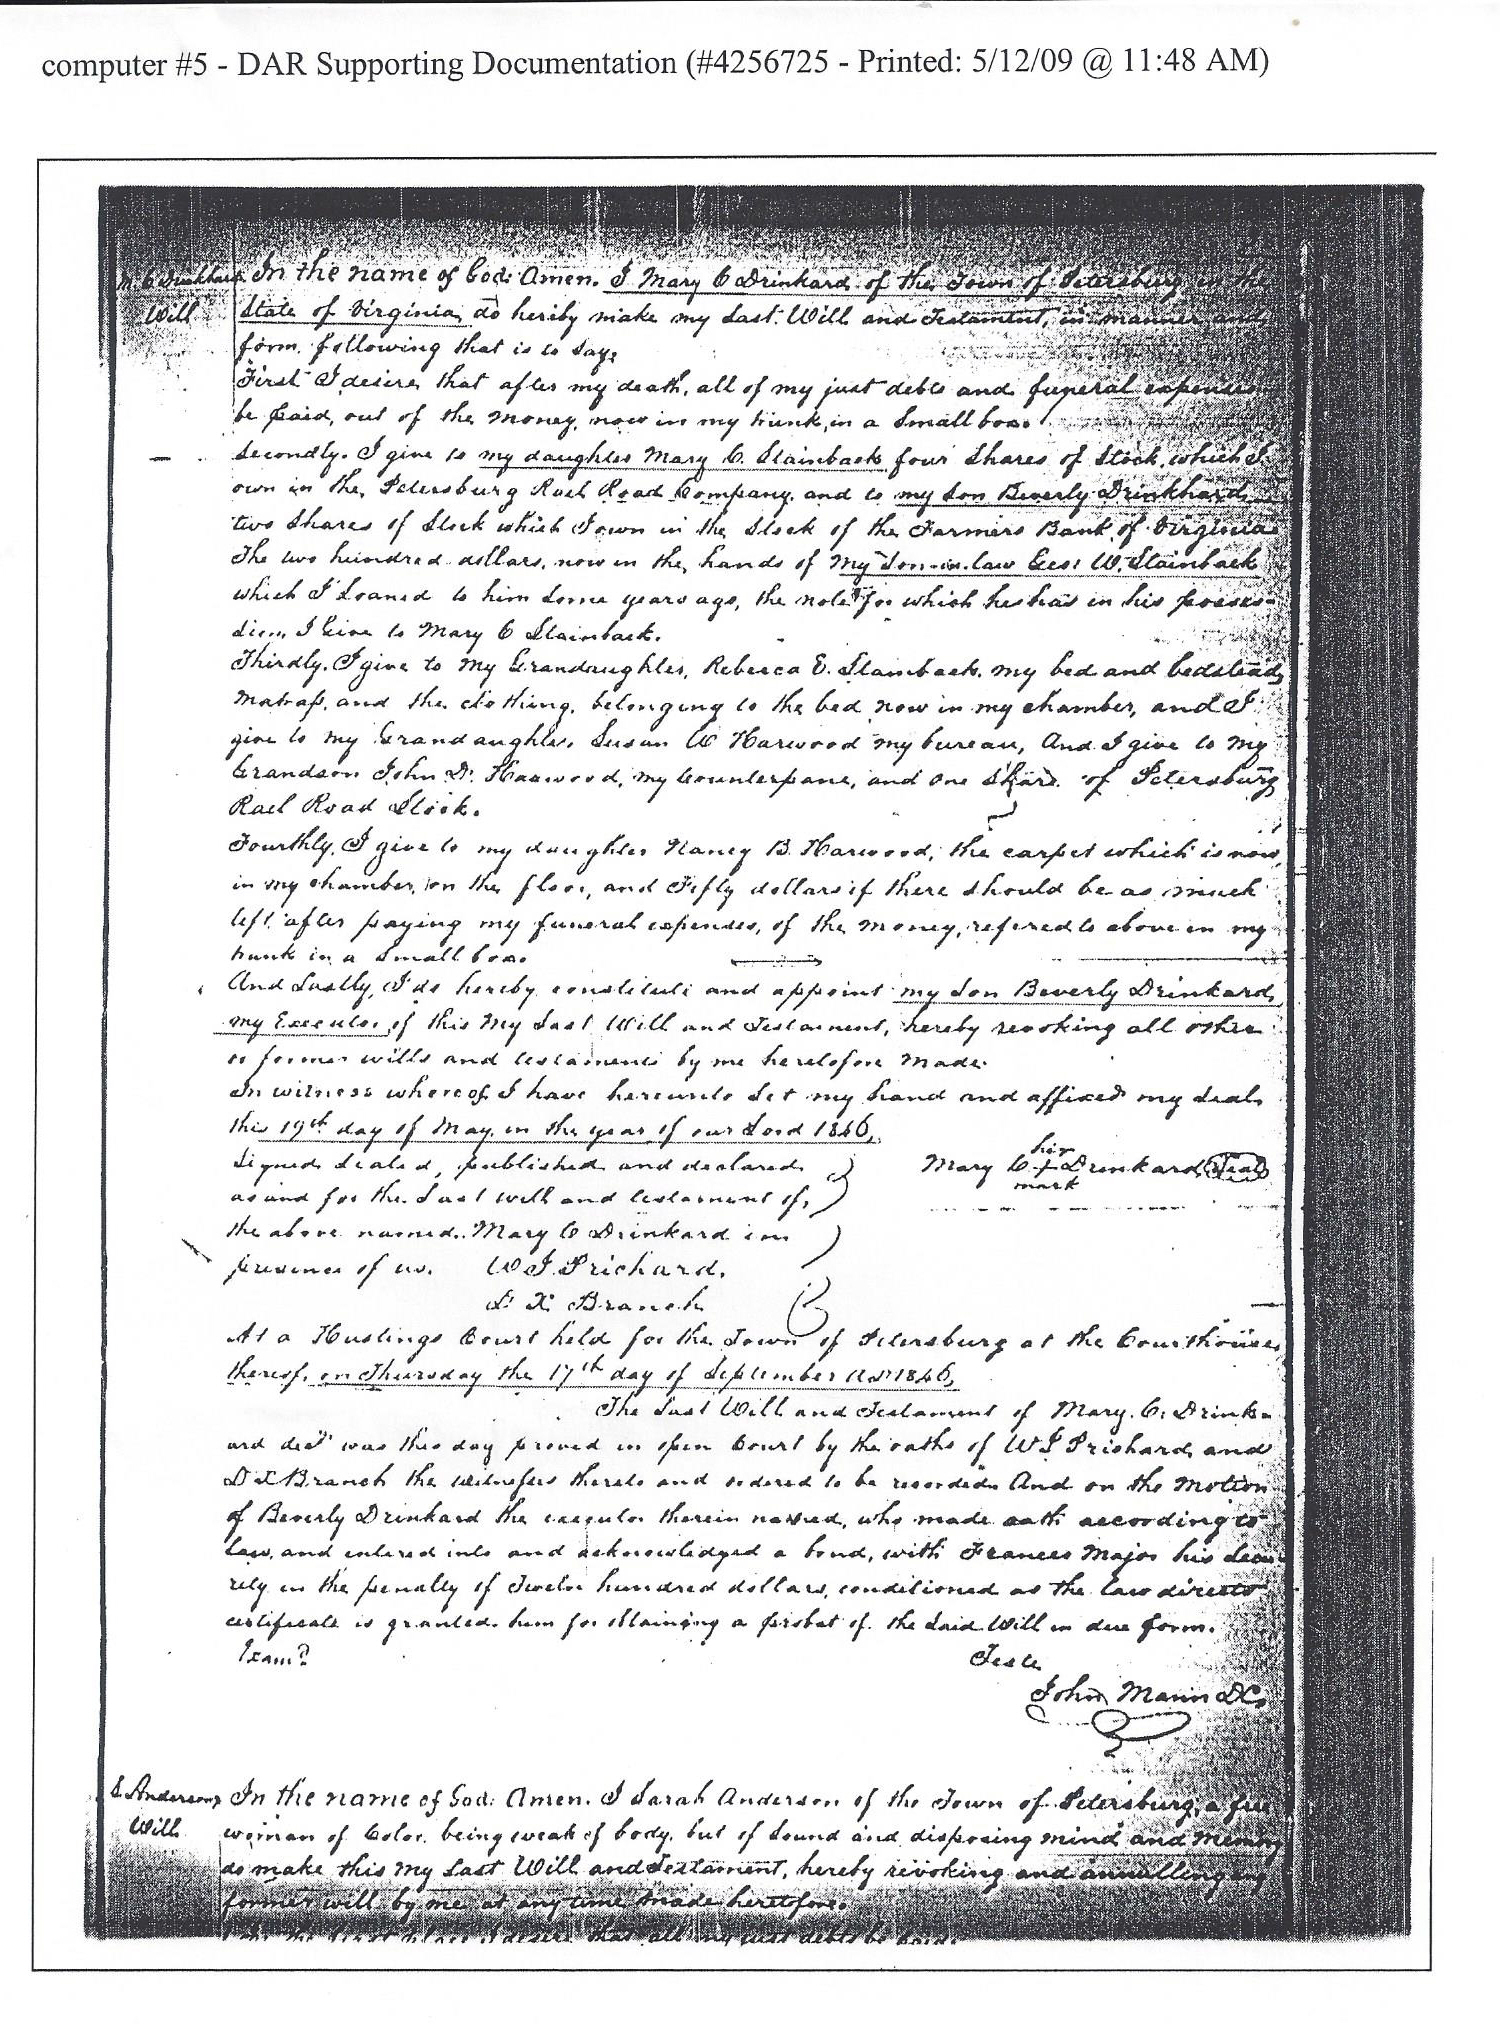 computer #5 - DAR Supporting Documentation (#4256725 - Printed: 5/12/09 @ 11:48 AM)
M. C. Drinkhard
Will
In the name of God: Amen. I Mary C Drinkard of the Town of Petersburg in the
State of Virginia, do heriby make my Last Will and Testament, in manner and
form following that is to say,
First I desire, that after my death, all of my just debts and funeral expenses
be paid, out of the money, now in my trunk, in a small box.
Secondly. I give to my daughter Mary C. Stainback four Shares of Stock, which I
own in the Petersburg Rael Road Company, and to my Son Beverly Drinkhard
two Shares of Stock which I own in the Stock of the Farmers Bank of Virginia
The two hundred dollars, now in the hands of my Son-in-law Geo: W. Stainback
which I Loaned to him some years ago, the note for which he has in his posses-
sion, I Give to Mary C Stainback.
Thirdly. I give to my Grandaughter, Rebecca E. Stainback, my bed and bedstead,
matrass, and the clothing, belonging to the bed now in my chamber, and I
give to my Grandaughter, Susan W Harwood my bureau, And I give to my
Grandson John D. Haswood, my Counterpane, and one Share of Petersburg
Rael Road Stock.
Fourthly, I give to my daughter Nancy B. Harwood, the carpet which is now,
in my chamber, on the floor, and Fifty dollars if there should be as much
left after paying my funeral expenses, of the money, refered to above in my
trunk in a small box.
And Lastly, I do hereby constitute and appoint my Son Beverly Drinkard,
my Executor, of this My Last Will and Testament, hereby revoking all other
or former wills and testaments by me heretofore made.
In witness whereof I have hereunto Set my hand and affixed my Seal,
this 19th day of May, in the year of our Lord 1846,
Signed, Sealed, published and declared
as and for the Last will and testament of,
the above named, Mary C Drinkard in
presence of us. W J Prichard,
D. X. Branch
her
Mary C + Drinkard Seal
mark
At a Hustings Court held for the Town of Petersburg at the Courthouse
thereof, on Thursday the 17th day of September AD 1846,
The Last Will and Testament of Mary. C. Drink-
ard decd was this day proved in open Court by the oaths of W J Prichard and
D X Branch the witnesses thereto and ordered to be recorded. And on the Motion
of Beverly Drinkard the executor therein named, who made oath according to
law, and entered into and acknowledged a bond, with Frances Major his Secu-
rity in the penalty of Twelve hundred dollars, conditioned as the law directs
certificate is granted him for obtaining a probat of the said Will in due form.
Examd
Teste
John Mann DC.
S. Andersons
Will
In the name of God: Amen. I Sarah Anderson of the Town of Petersburg, a free
woman of Color, being weak of body, but of sound and disposing mind and memory
do make this my Last Will and Testament, hereby revoking and annulling any
former will by me at any time made heretofore.
desire that all my just debts be paid.